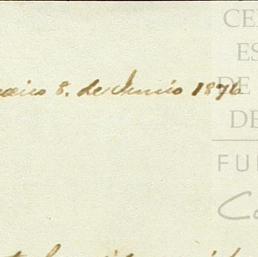 neiro 8. de Junio 1876
CE
ES
DE
DE
FU
Co